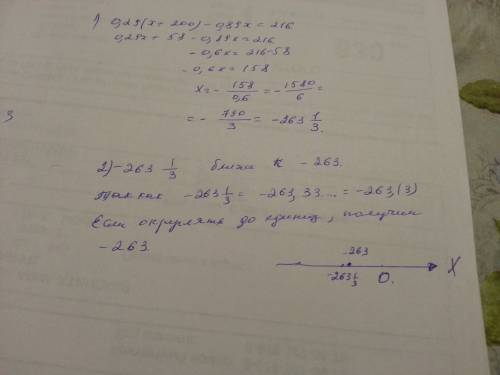 1) 0,29(x + 200) - 0,89x = 216
0,29x + 58 - 0,89x = 216
- 0,6x = 216-58
- 0,6x = 158
x = - 158/0,6 = - 1580/6 =
= - 790/3 = - 263 1/3.
2) -263 1/3 ближе к -263.
Так как -263 1/3 = -263,33... = -263,(3)
Если округлять до единиц, получим
-263.
-263
-263 1/3 0. X